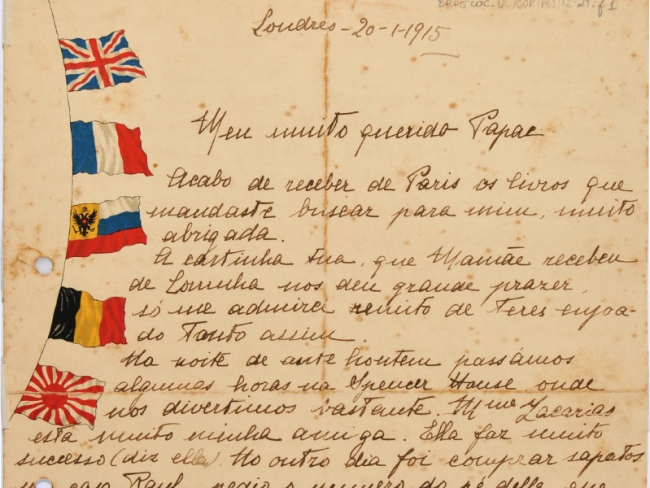 Londres - 20-1-1915
Meu muito querido Papae
Acabo de receber de Paris os livros que
mandaste buscar para mim, muito
abrigada.
A cartinha tua, que Mamãe recebeu
de nos deu grande prazer,
só me admirei muito de teres enjoa-
do tanto assim
Na noite de ante hontem passámos
algumas horas na Spencer House onde
nos divertimos bastante. Mme Zacarias
está muito minha amiga. Ella faz muito
successo (diz ella). No outro dia foi comprar sapatos